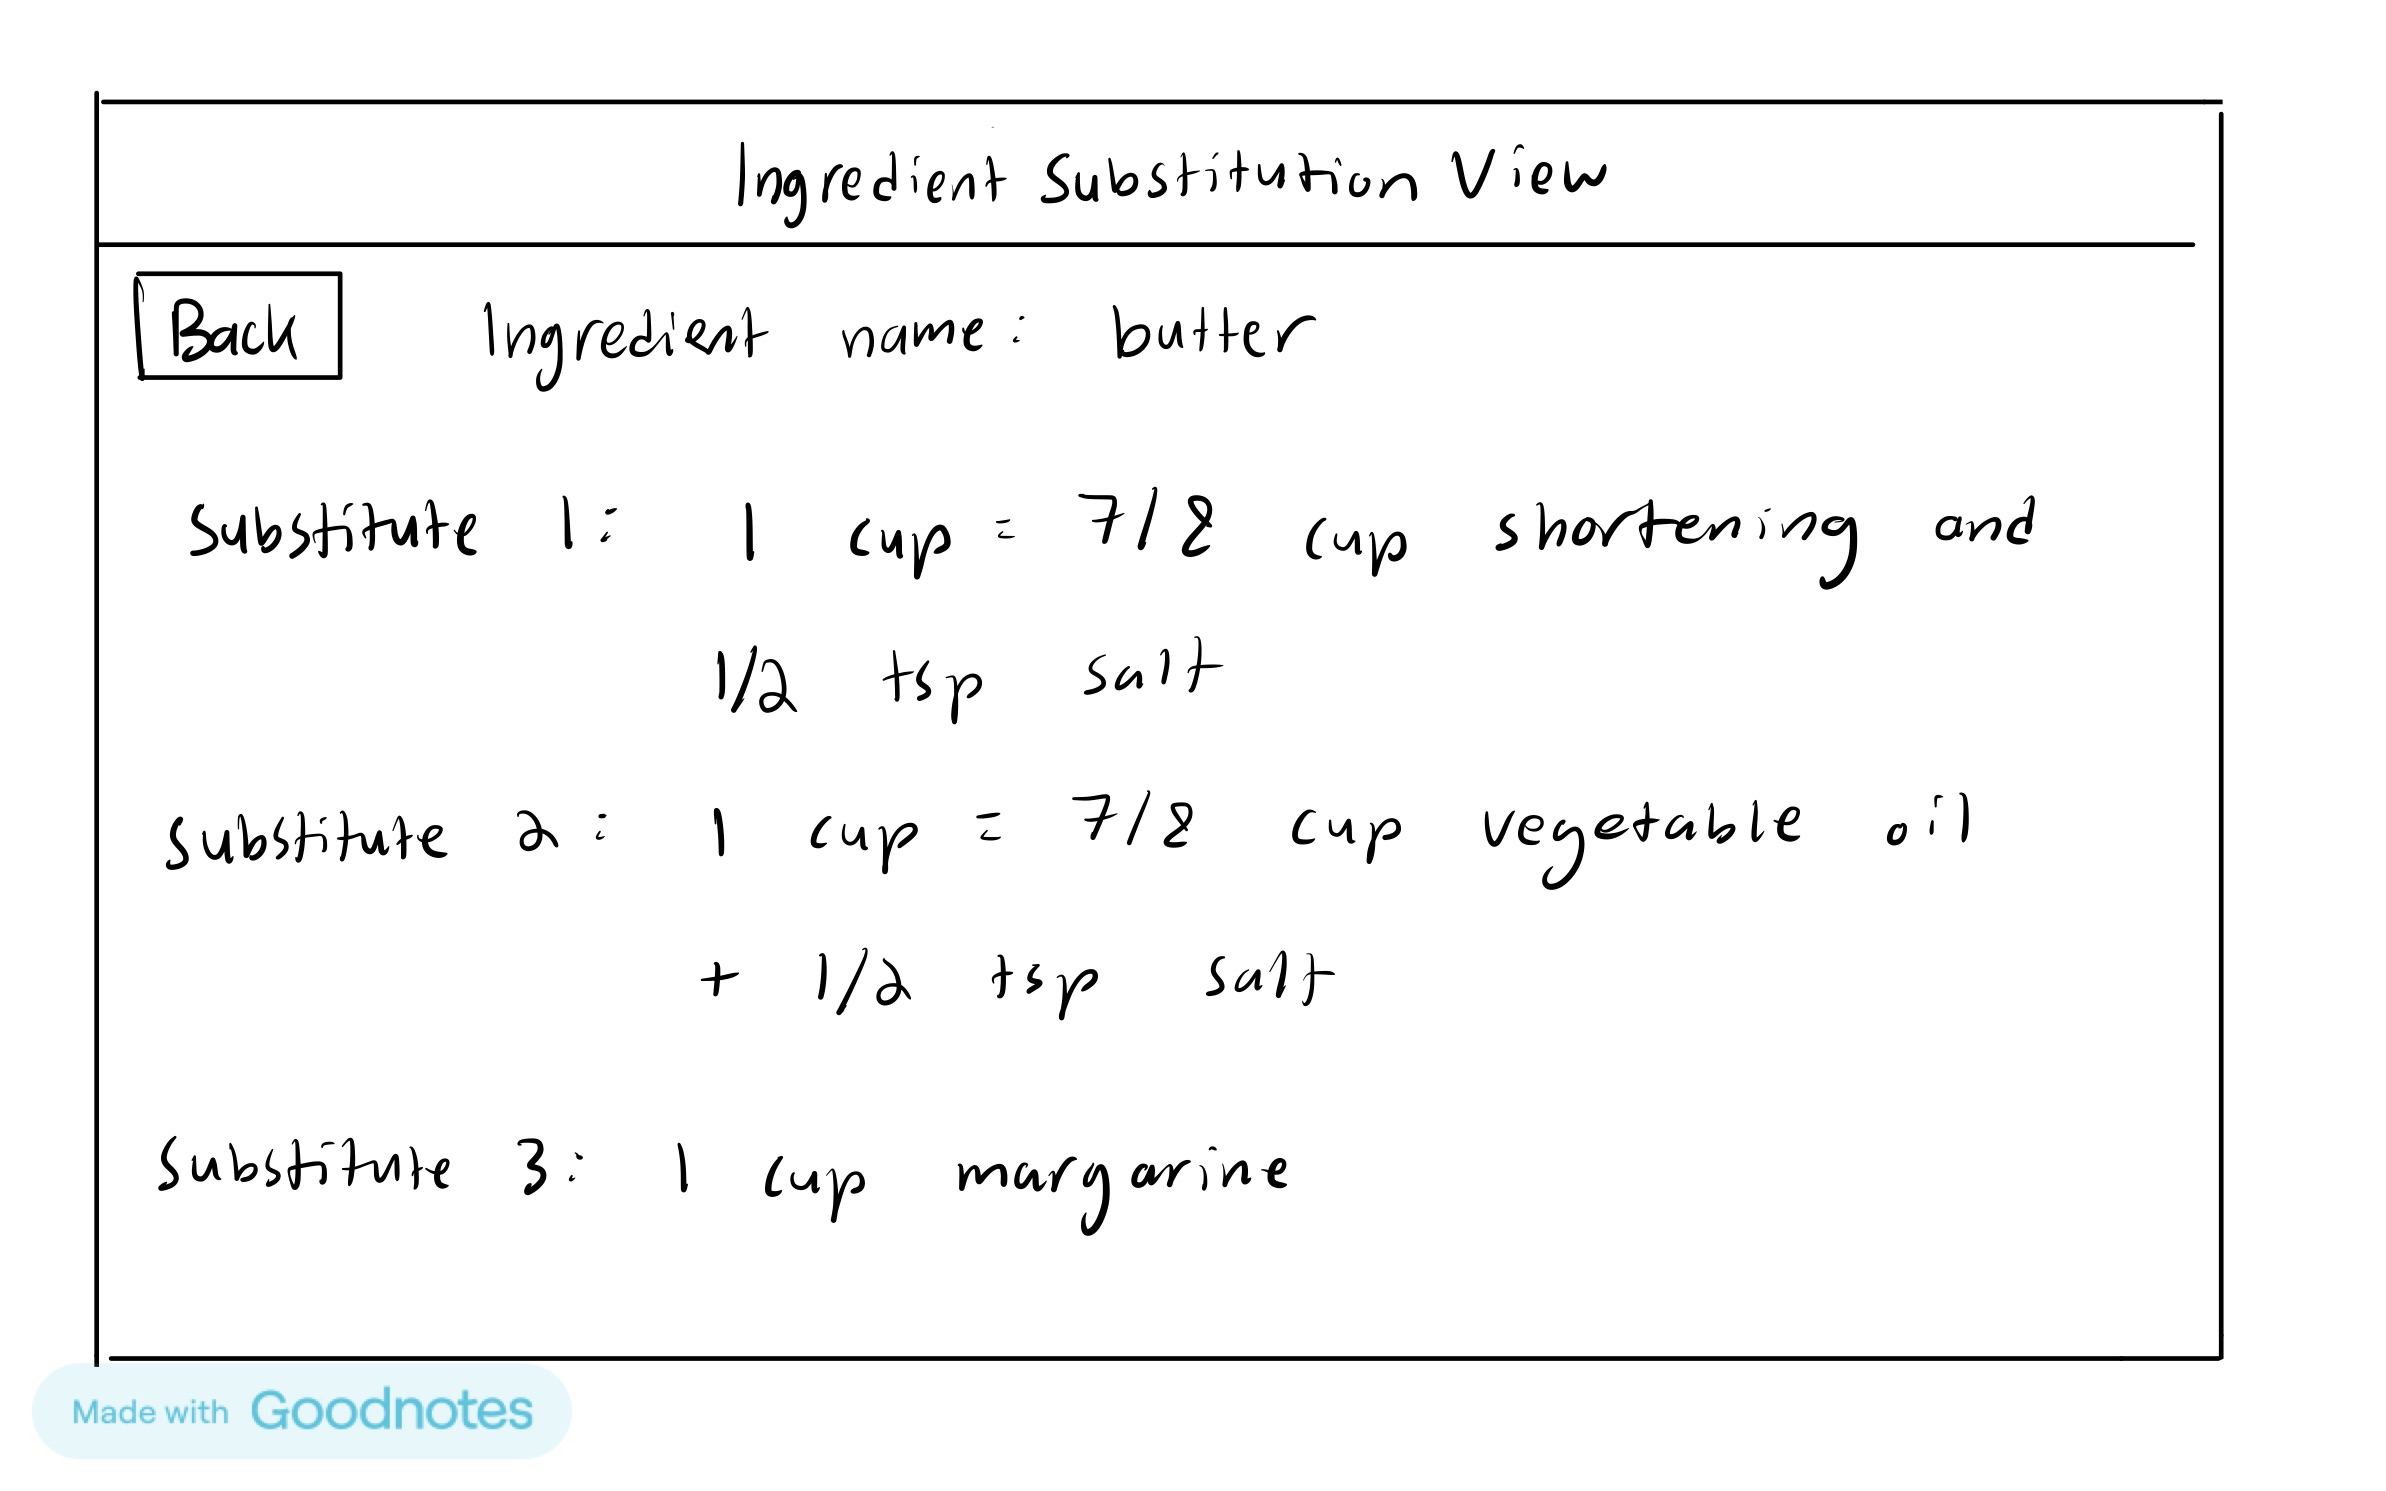 Ingredient Substitution View
Back
Ingredient name: butter
Substitute 1: 1 cup = 7/8 cup shortening and
1/2 tsp salt
Substitute 2: 1 cup = 7/8 cup vegetable oil
+ 1/2 tsp salt
Substitute 3: 1 cup margarine
Made with Goodnotes